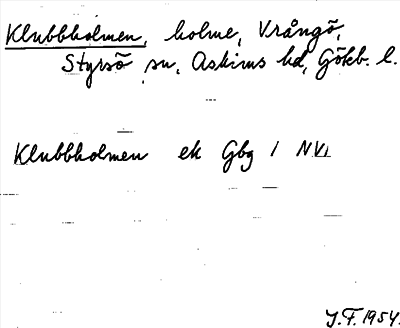 Klubbholmen, holme, Vrångö,
Styrsö sn, Askims hd, Götb. l.
Klubbholmen ek Gbg 1 NV
J.F. 1954.